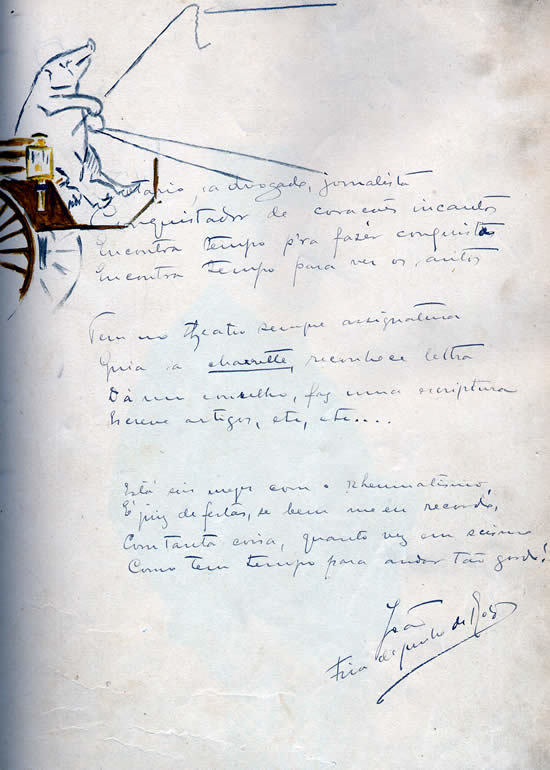 Notario, advogado, jornalista
Conquistador de corações incautos
Encontra tempo p'ra fazer conquistas
Encontra tempo para ver os autos
Tem no theatro sempre assignatura
Guia a charrette, reconhece lettra
Dá um conselho, faz uma escriptura
Escreve artigos, etc, etc....
Está seis mezes com o Rheumatismo,
É juiz de festas, se bem me eu recordo,
Com tanta coisa, quanta vez em scismo
Como tem tempo para andar tão gordo!
João